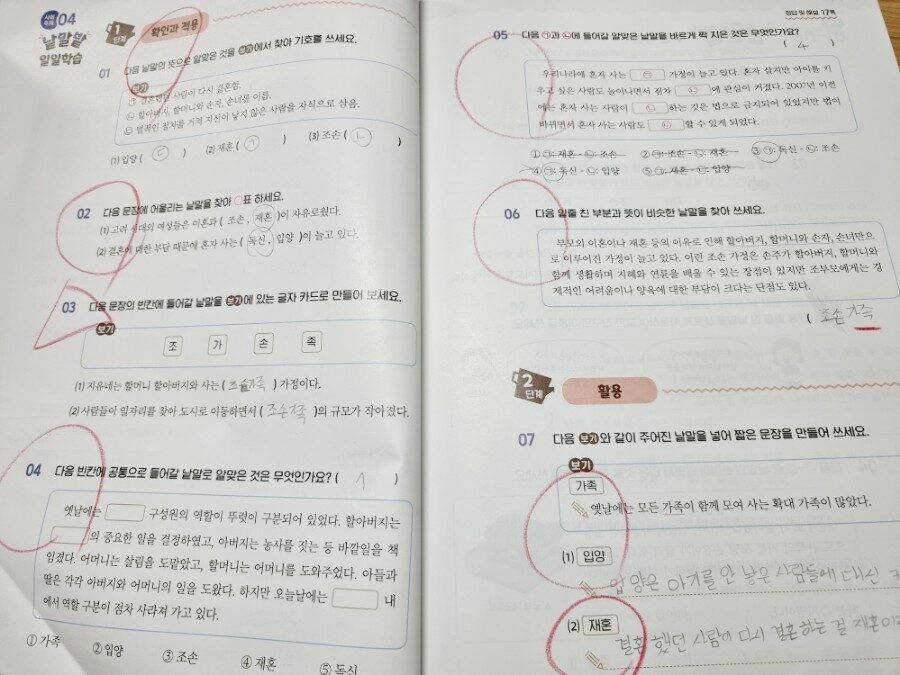 사회 속에 04
낱말밭
일일학습
1단계 확인과 적용
01 다음 낱말의 뜻으로 알맞은 것을 보기에서 찾아 기호를 쓰세요.
보기
㉠ 결혼했던 사람이 다시 결혼함.
㉡ 할아버지, 할머니와 손자, 손녀를 이름.
㉢ 법적인 절차를 거쳐 자신이 낳지 않은 사람을 자식으로 삼음.
(1) 입양 ( ㄷ ) (2) 재혼 ( ㄱ ) (3) 조손 ( ㄴ )
02 다음 문장에 어울리는 낱말을 찾아 ○표 하세요.
(1) 고려 시대의 여성들은 이혼과 ( 조손, 재혼 )이 자유로웠다.
(2) 결혼에 대한 부담 때문에 혼자 사는 ( 독신, 입양 )이 늘고 있다.
03 다음 문장의 빈칸에 들어갈 낱말을 보기에 있는 글자 카드로 만들어 보세요.
보기
조 가 손 족
(1) 지유네는 할머니 할아버지와 사는 ( 조손가족 ) 가정이다.
(2) 사람들이 일자리를 찾아 도시로 이동하면서 ( 조손가족 )의 규모가 작아졌다.
04 다음 빈칸에 공통으로 들어갈 낱말로 알맞은 것은 무엇인가요? ( 1 )
옛날에는 구성원의 역할이 뚜렷이 구분되어 있었다. 할아버지는
의 중요한 일을 결정하였고, 아버지는 농사를 짓는 등 바깥일을 책
임졌다. 어머니는 살림을 도맡았고, 할머니는 어머니를 도와주었다. 아들과
딸은 각각 아버지와 어머니의 일을 도왔다. 하지만 오늘날에는 내
에서 역할 구분이 점차 사라져 가고 있다.
① 가족 ② 입양 ③ 조손 ④ 재혼 ⑤ 독신
정답 및 해설 17쪽
05 다음 ㉠과 ㉡에 들어갈 알맞은 낱말을 바르게 짝 지은 것은 무엇인가요?
( 4 )
우리나라에 혼자 사는 ㉠ 가정이 늘고 있다. 혼자 살지만 아이를 키
우고 싶은 사람도 늘어나면서 점차 ㉡ 에 관심이 커졌다. 2007년 이전
에는 혼자 사는 사람이 ㉡ 하는 것은 법으로 금지되어 있었지만 법이
바뀌면서 혼자 사는 사람도 ㉡ 할 수 있게 되었다.
① ㉠: 재혼 - ㉡: 조손 ② ㉠: 조손 - ㉡: 재혼 ③ ㉠: 독신 - ㉡: 조손
④ ㉠: 독신 - ㉡: 입양 ⑤ ㉠: 재혼 - ㉡: 입양
06 다음 밑줄 친 부분과 뜻이 비슷한 낱말을 찾아 쓰세요.
부모의 이혼이나 재혼 등의 이유로 인해 할아버지, 할머니와 손자, 손녀만으
로 이루어진 가정이 늘고 있다. 이런 조손 가정은 손주가 할아버지, 할머니와
함께 생활하며 지혜와 연륜을 배울 수 있는 장점이 있지만 조부모에게는 경
제적인 어려움이나 양육에 대한 부담이 크다는 단점도 있다.
( 조손가족
2단계 활용
07 다음 보기와 같이 주어진 낱말을 넣어 짧은 문장을 만들어 쓰세요.
보기
가족
옛날에는 모든 가족이 함께 모여 사는 확대 가족이 많았다.
(1) 입양
입양은 아기를 안 낳은 사람들에 대신
(2) 재혼
결혼 했던 사람이 다시 결혼하는 걸 재혼이